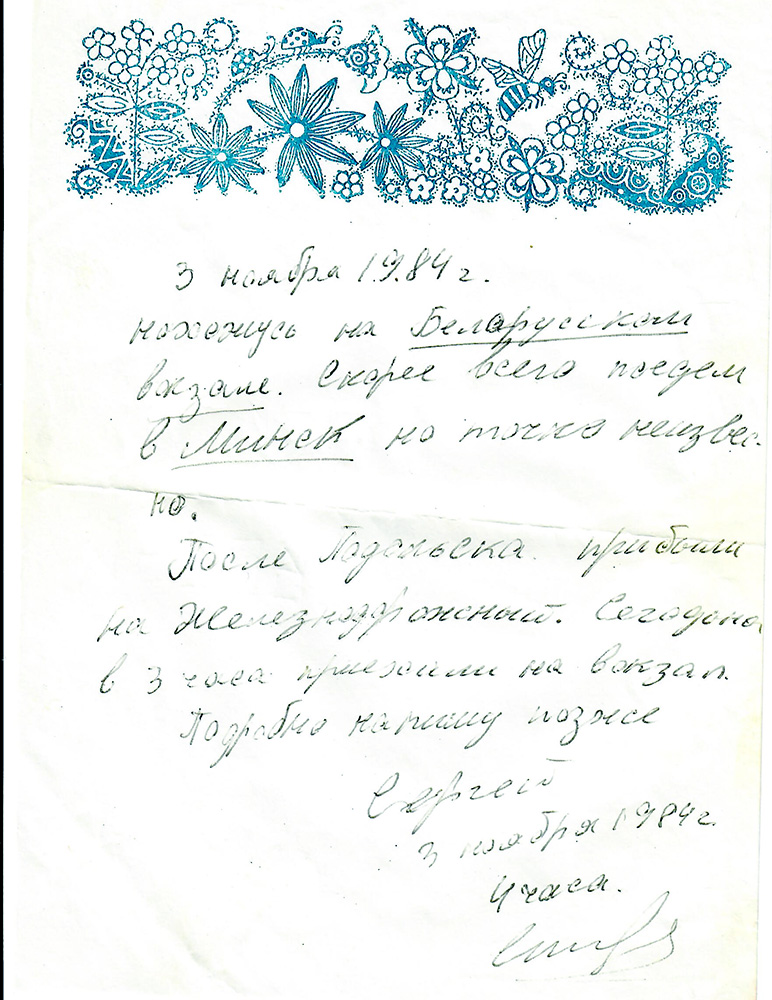 3 ноября 1984 г.
нахожусь на Белорусском
вокзале. Скорее всего поедем
в Минск но точно неизвес-
но.
После Подольска прибыли
на Железнодорожный. Сегодня
в 3 часа приехали на вокзал.
Подробно напишу позже
Сергей
3 ноября 1984 г.
4 часа.